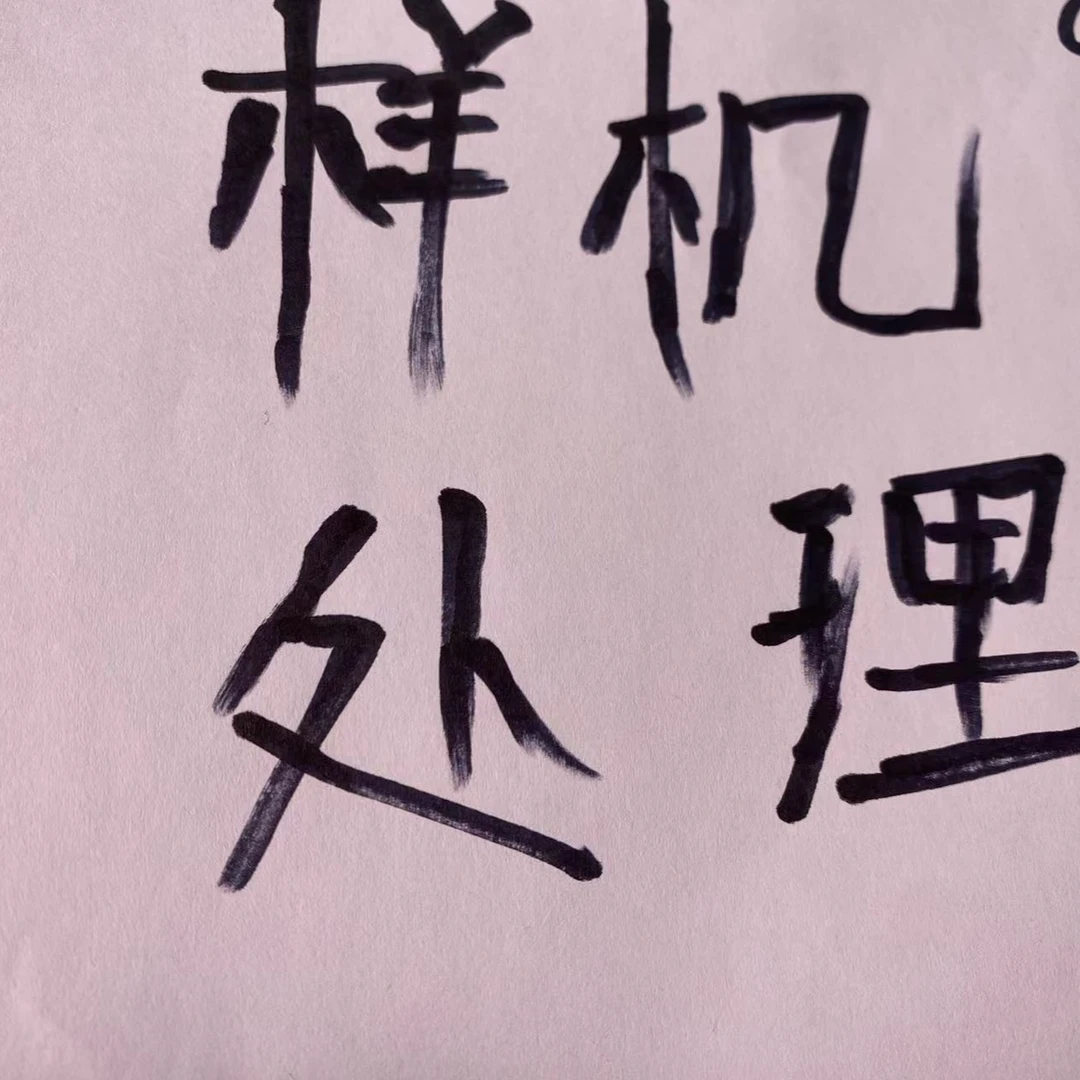 样机
处理